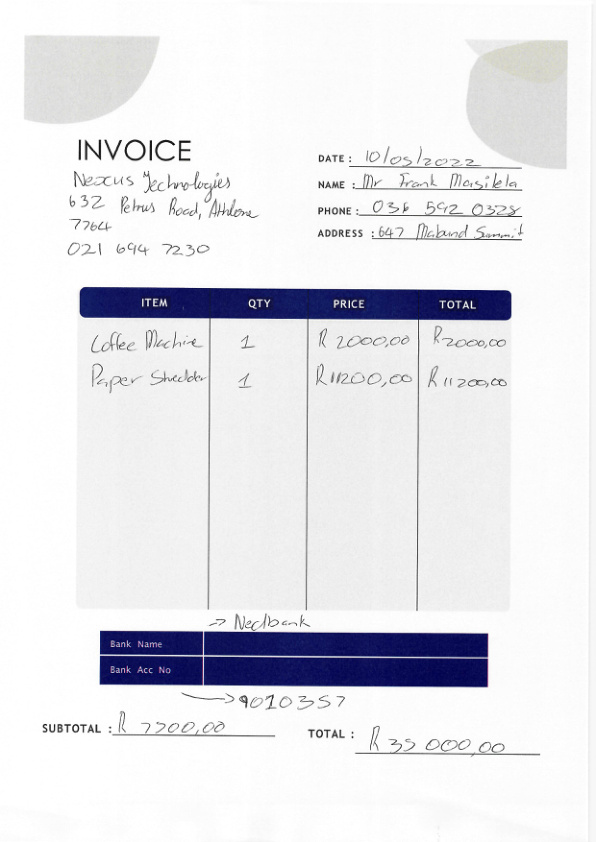 INVOICE
Nexus Technologies
632 Petrus Road, Athlone
7764
021 694 7230
DATE : 10/05/2022
NAME : Mr Frank Masilela
PHONE : 036 592 0328
ADDRESS : 647 Mabund Summit
ITEM QTY PRICE TOTAL
Coffee Machine 1 R 2000,00 R2000,00
Paper Shedder 1 R11200,00 R11200,00
-> Nedbank
Bank Name
Bank Acc No
-> 9010357
SUBTOTAL : R 7700,00
TOTAL : R 35 000,00